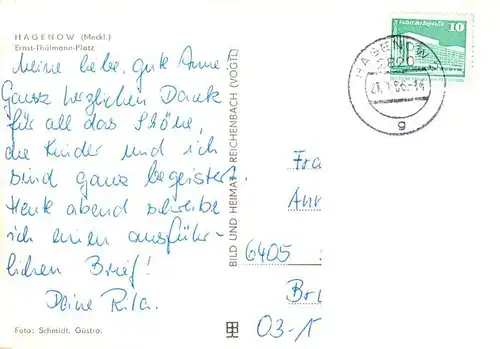 HAGENOW (Meckl.)
Ernst-Thälmann-Platz
Meine liebe, gute Anne,
Ganz herzlichen Dank
für all das Schöne,
die Kinder und ich
sind ganz begeistert.
Heute abend schreibe
ich einen ausführ-
lichen Brief!
Deine Rita.
Foto: Schmidt, Güstro.
BILD UND HEIMAT REICHENBACH (VOGTL)
Palast der Republik
10
HAGENOW
2820
g
Fra
Anr
6405
Br
03-1